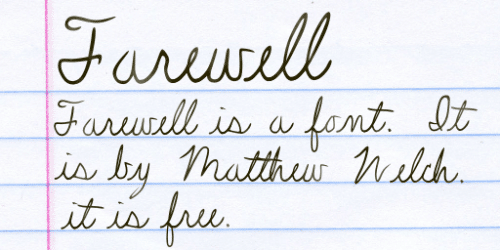 Farewell
Farewell is a font. It
is by Matthew Welch.
it is free.